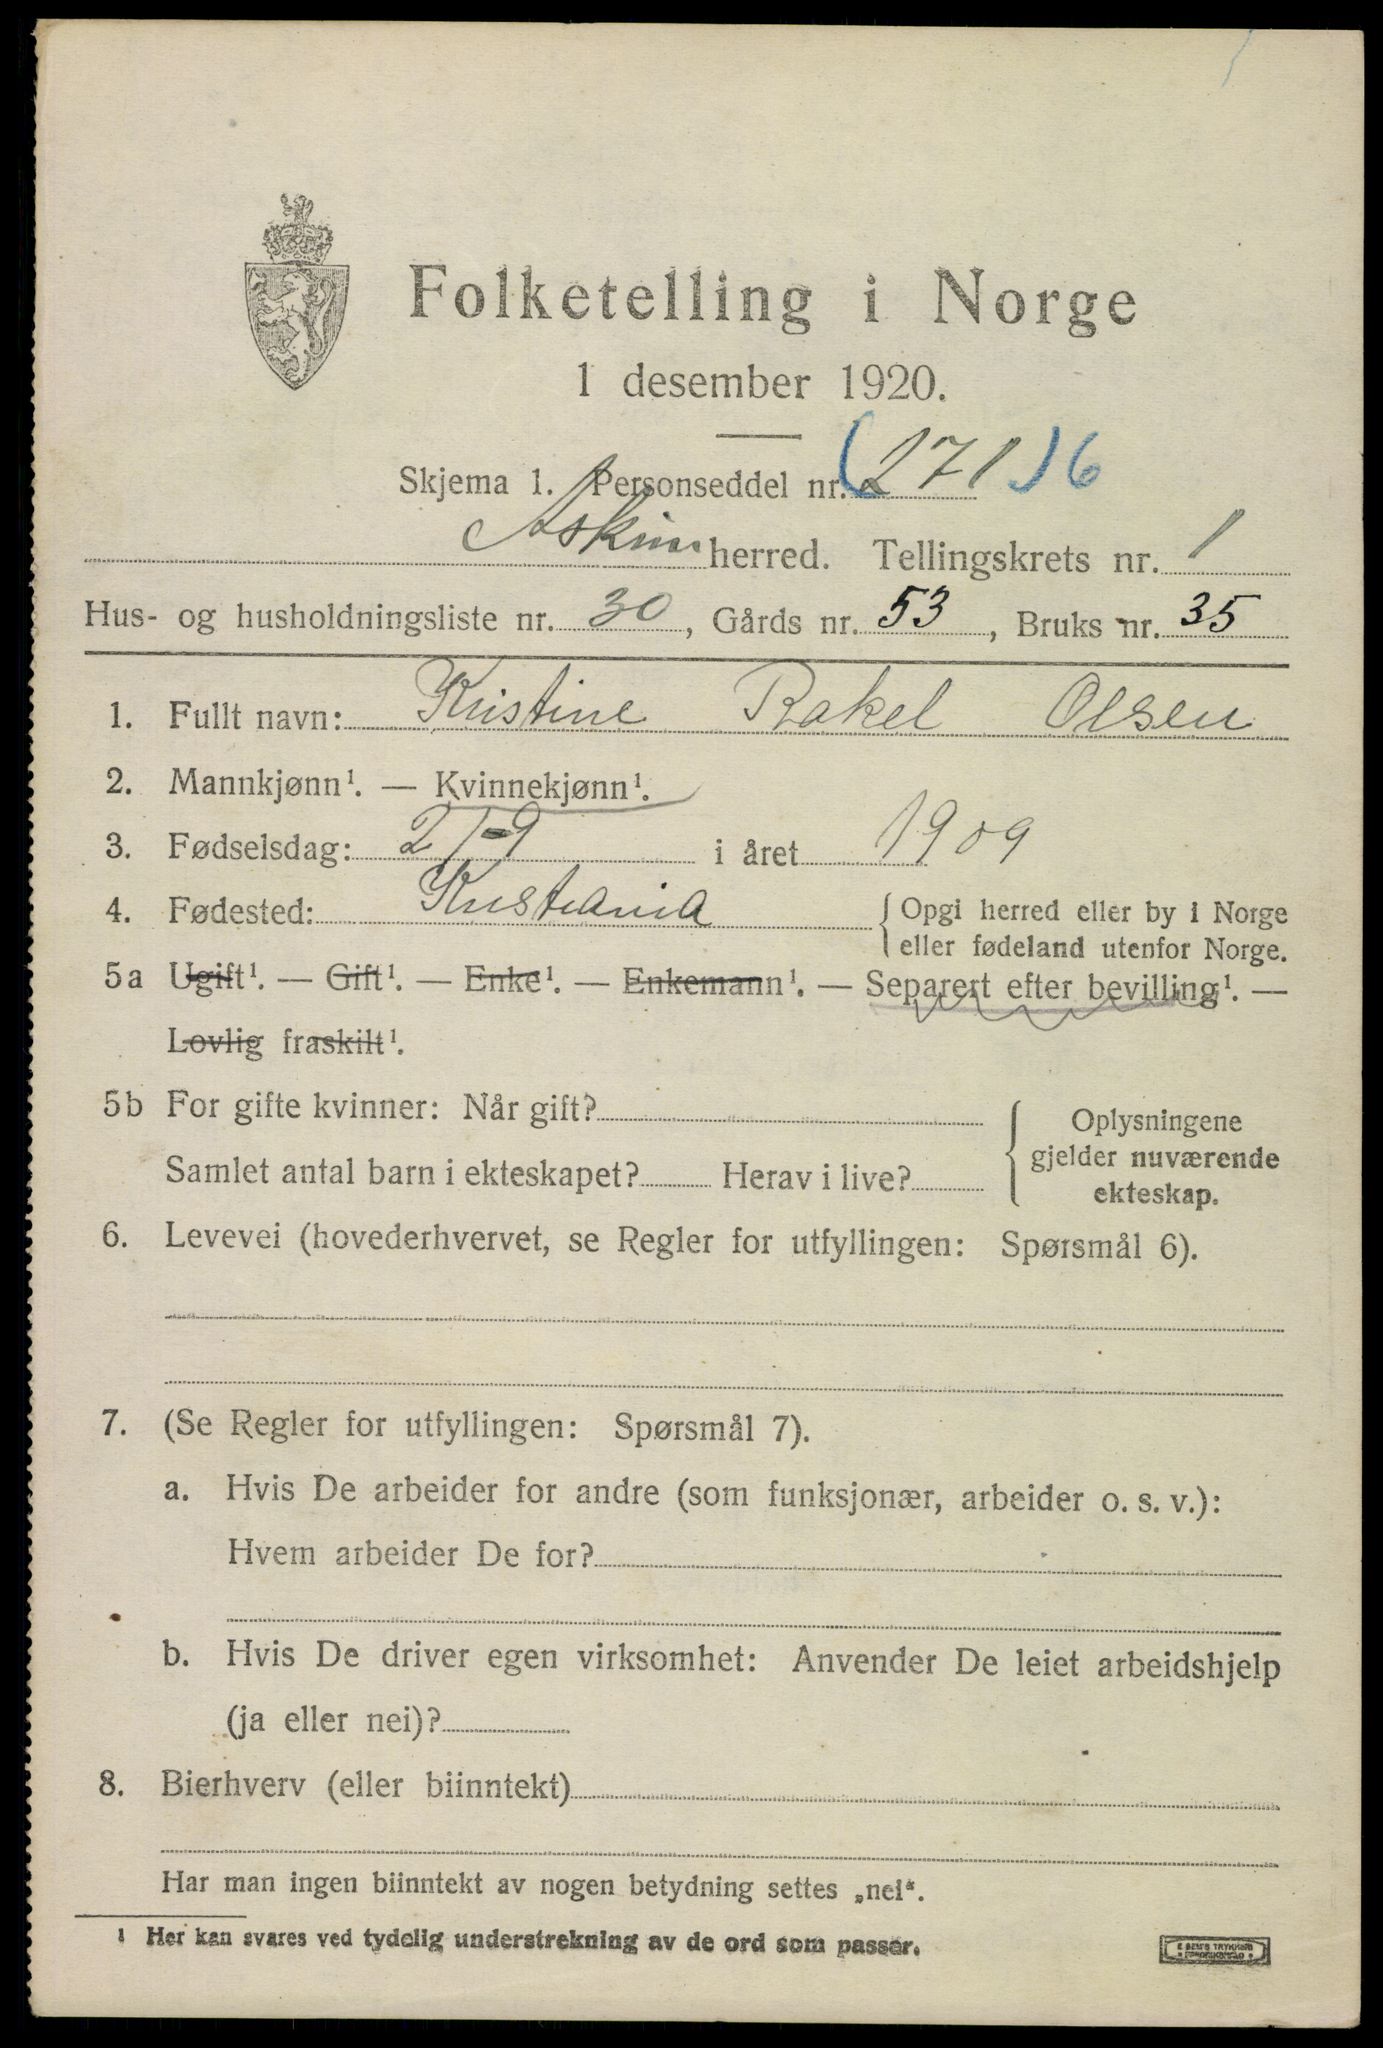 Folketelling i Norge
1 desember 1920.
Skjema 1. Personseddel nr. (271) 6
Askim herred. Tellingskrets nr. 1
Hus- og husholdningsliste nr. 30, Gårds nr. 53, Bruks nr. 35
1. Fullt navn: Kristine Rakel Olsen
2. Mannkjønn¹. — Kvinnekjønn¹.
3. Fødselsdag: 2/-9 i året 1909
4. Fødested: Kristiania { Opgi herred eller by i Norge
eller fødeland utenfor Norge.
5a Ugift¹. — Gift¹. — Enke¹. — Enkemann¹. — Separert efter bevilling¹. —
Lovlig fraskilt¹.
5b For gifte kvinner: Når gift?
Samlet antal barn i ekteskapet? Herav i live?
{ Oplysningene
gjelder nuværende
ekteskap.
6. Levevei (hovederhvervet, se Regler for utfyllingen: Spørsmål 6).
7. (Se Regler for utfyllingen: Spørsmål 7).
a. Hvis De arbeider for andre (som funksjonær, arbeider o. s. v.):
Hvem arbeider De for?
b. Hvis De driver egen virksomhet: Anvender De leiet arbeidshjelp
(ja eller nei)?
8. Bierhverv (eller biinntekt)
Har man ingen biinntekt av nogen betydning settes „nei“.
¹ Her kan svares ved tydelig understrekning av de ord som passer.